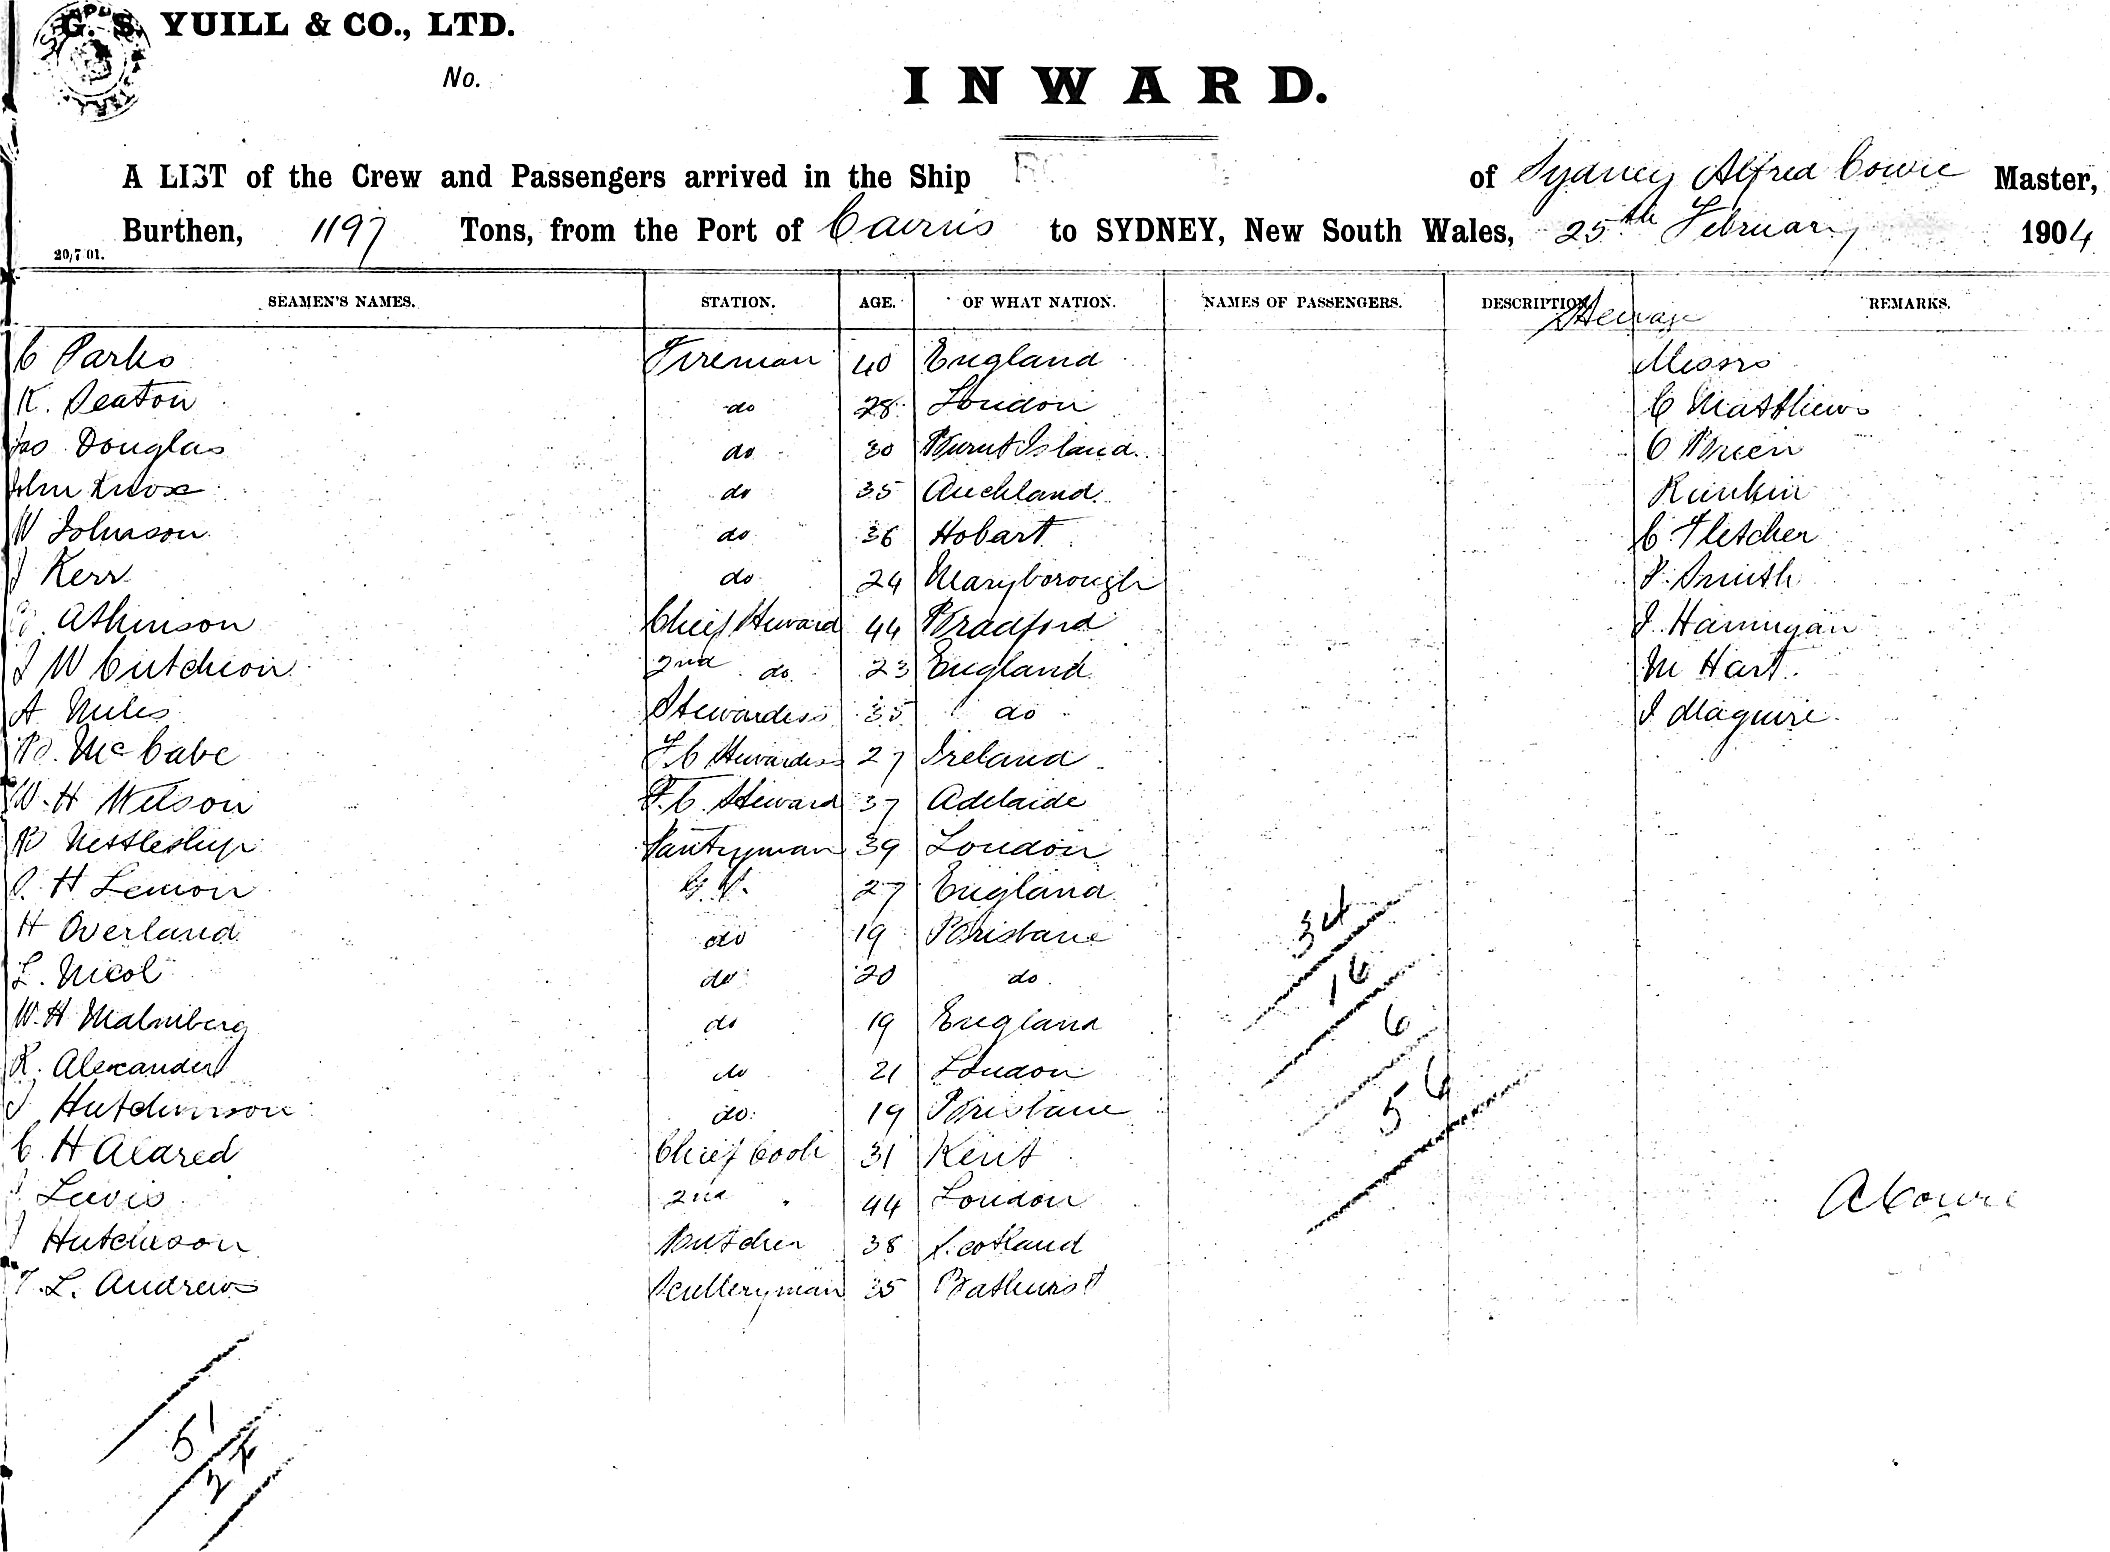 G. S. YUILL & CO., LTD.
No.
INWARD.
A LIST of the Crew and Passengers arrived in the Ship of Sydney Alfred Cowie Master,
Burthen, 1197 Tons, from the Port of Cairns to SYDNEY, New South Wales, 25th February 1904
20/7 01.
SEAMEN'S NAMES. STATION. AGE. OF WHAT NATION. NAMES OF PASSENGERS. DESCRIPTION. REMARKS.
Steerage
C Parks Fireman 40 England Messrs
K. Seaton do 28 London C Matthews
Jas Douglas do 30 Burnt Island O Brien
John Knox do 35 Auckland Rankin
W Johnson do 36 Hobart C. Fletcher
J Kerr do 24 Maryborough P. Smith
Atkinson Chief Steward 44 Bradford J. Hannigan
J W Cutcheon 2nd do 23 England M Hart.
A Miles Stewardess 35 do J Maguire
B. McCabe F. C Stewardess 27 Ireland
W. H Wilson F. C. Steward 37 Adelaide
B Nettleship Pantryman 39 London
H Lemon G. S. 27 England
H Overland do 19 Brisbane
L. Nicol do 20 do
W. H Malmberg do 19 England
R. Alexander do 21 London
J Hutchinson do 19 Brisbane
C. H Aldred Chief Cook 31 Kent
Lewis 2nd " 44 London
J Hutcheson Butcher 38 Scotland
T. L. Andrews Scullery man 35 Bathurst
34
16
6
56
A Cowie
51
22